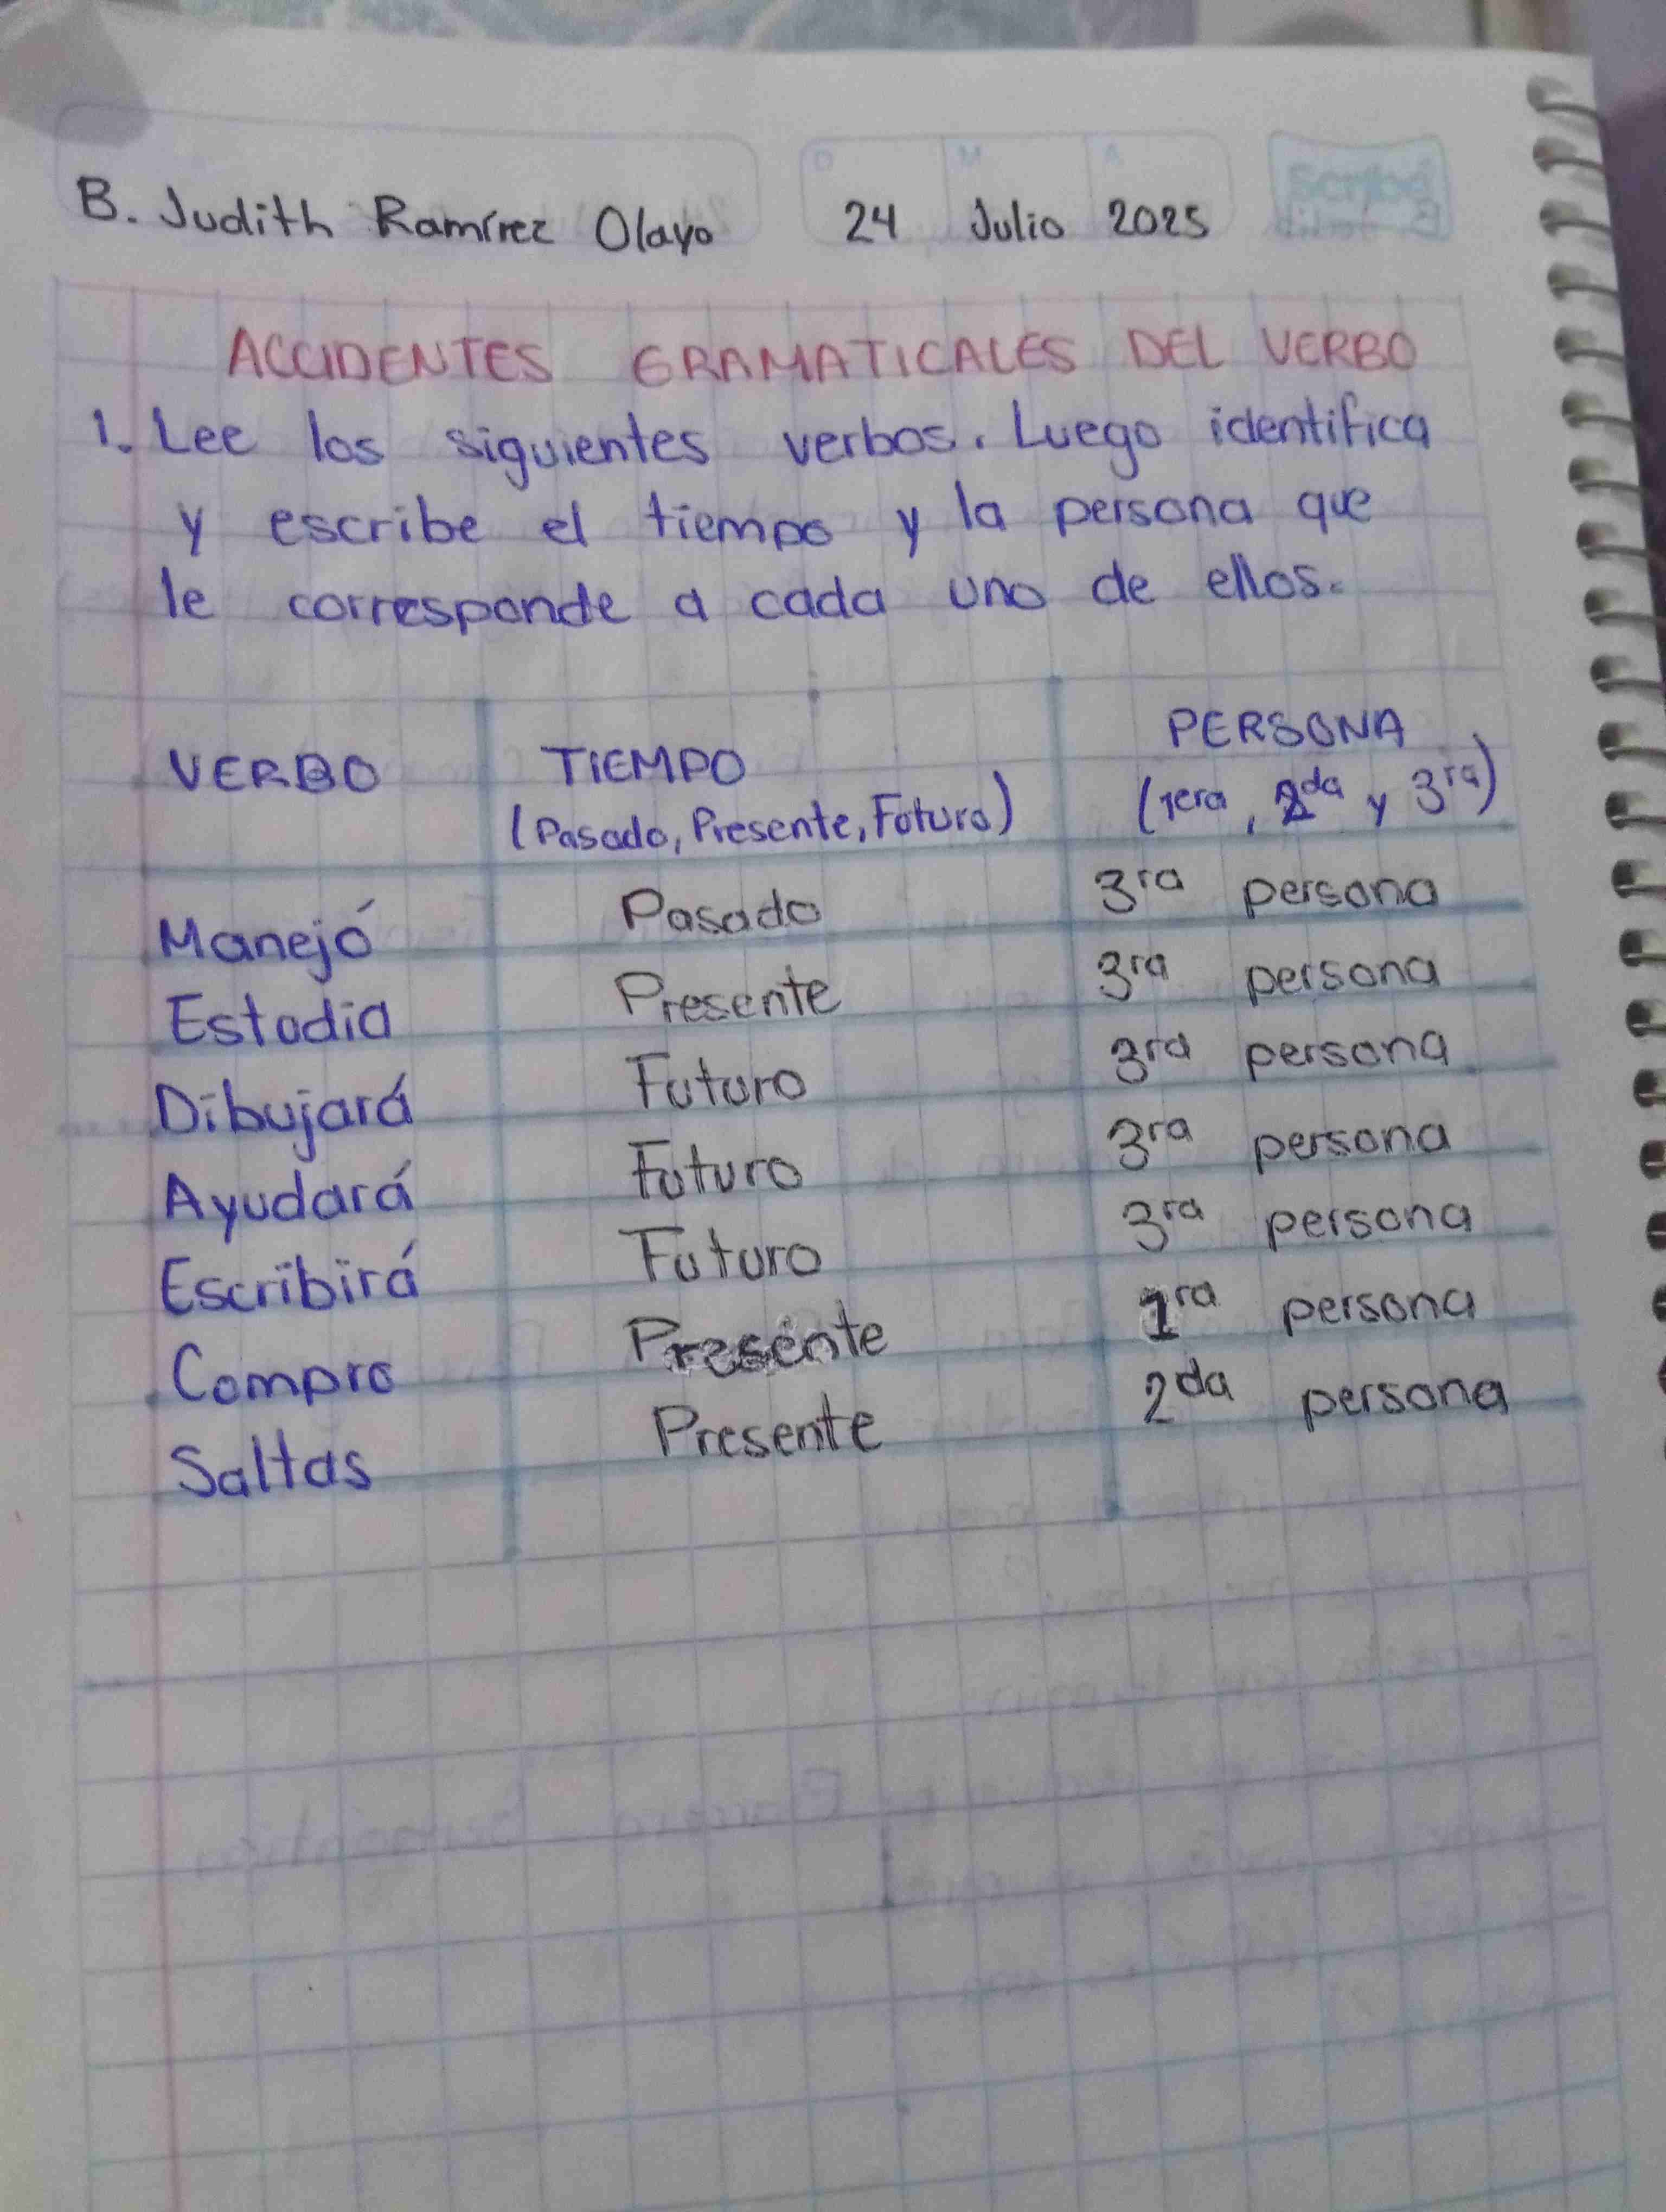 D M A Scribe
B. Judith Ramírez Olayo 24 Julio 2025
ACCIDENTES GRAMATICALES DEL VERBO
1. Lee los siguientes verbos. Luego identifica
y escribe el tiempo y la persona que
le corresponde a cada uno de ellos.
VERBO TIEMPO PERSONA
(Pasado, Presente, Futuro) (1era, 2da y 3ra)
Manejó Pasado 3ra persona
Estudia Presente 3ra persona
Dibujará Futuro 3ra persona
Ayudará Futuro 3ra persona
Escribirá Futuro 3ra persona
Compro Presente 1ra persona
Saltas Presente 2da persona